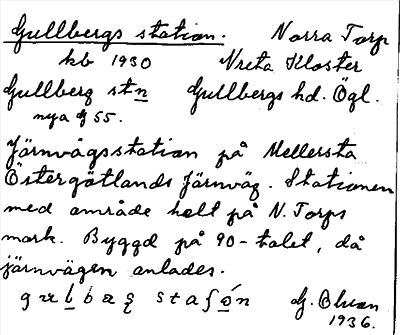 Gullbergs station. Norra Torp
hb 1930 Vreta Kloster
Gullberg stn Gullbergs hd. Ögl.
nya J 55.
Järnvägsstation på Mellersta
Östergötlands Järnväg. Stationen
med område helt på N. Torps
mark. Byggd på 90-talet, då
järnvägen anlades.
1936.